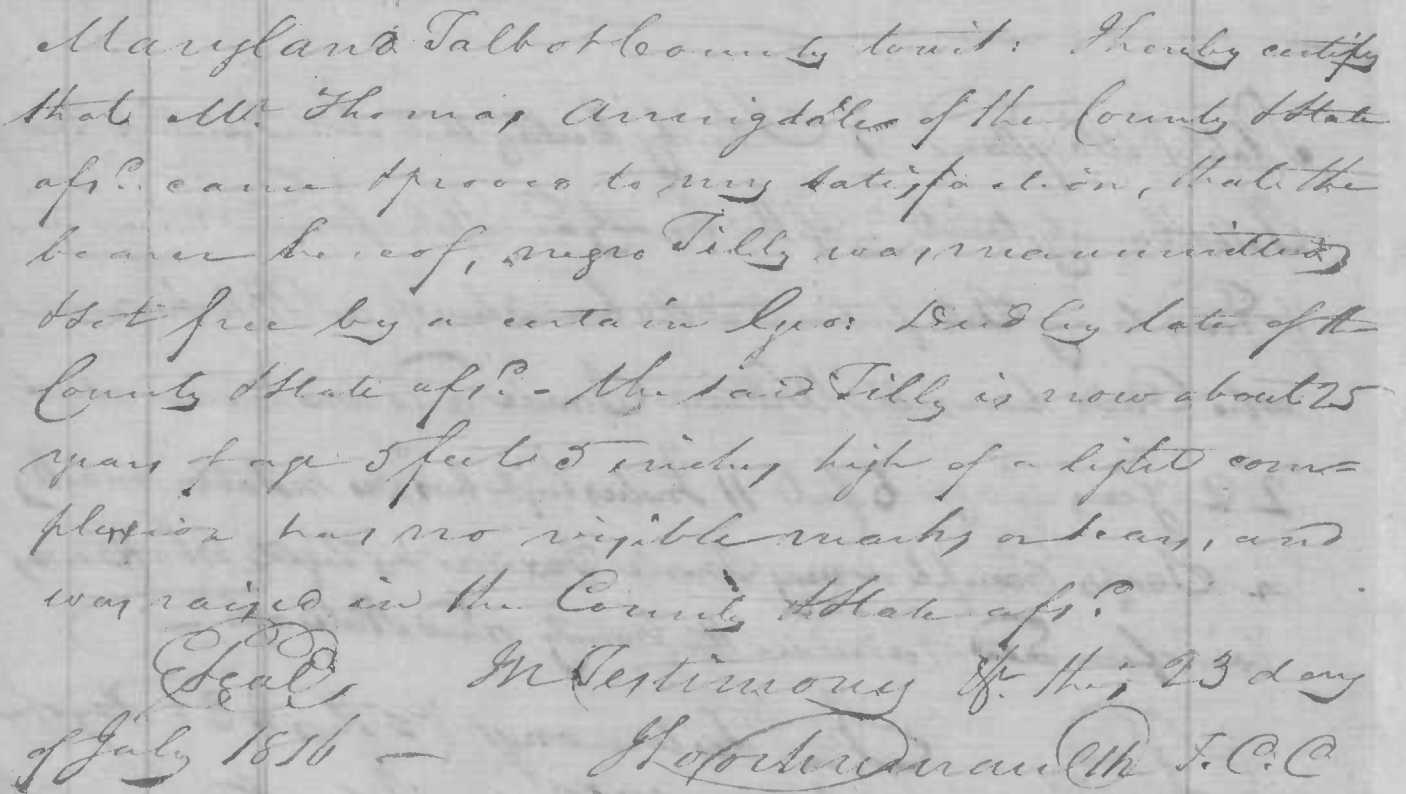 Maryland Talbot County towit: I hereby certify
that Mr. Thomas Arringdale of the County & State
afsd. came & proved to my satisfaction, that the
bearer hereof, negro Tilly was manumitted
& set free by a certain Geo: Dudley late of the
County & State afsd. - the said Tilly is now about 25
years of age 5 feet 5 inches high of a light com=
plexion has no visible marks or scars, and
was raised in the County & State afsd.
Seal In Testimony &c. this 23 day
of July 1816 — Clk T.C.C